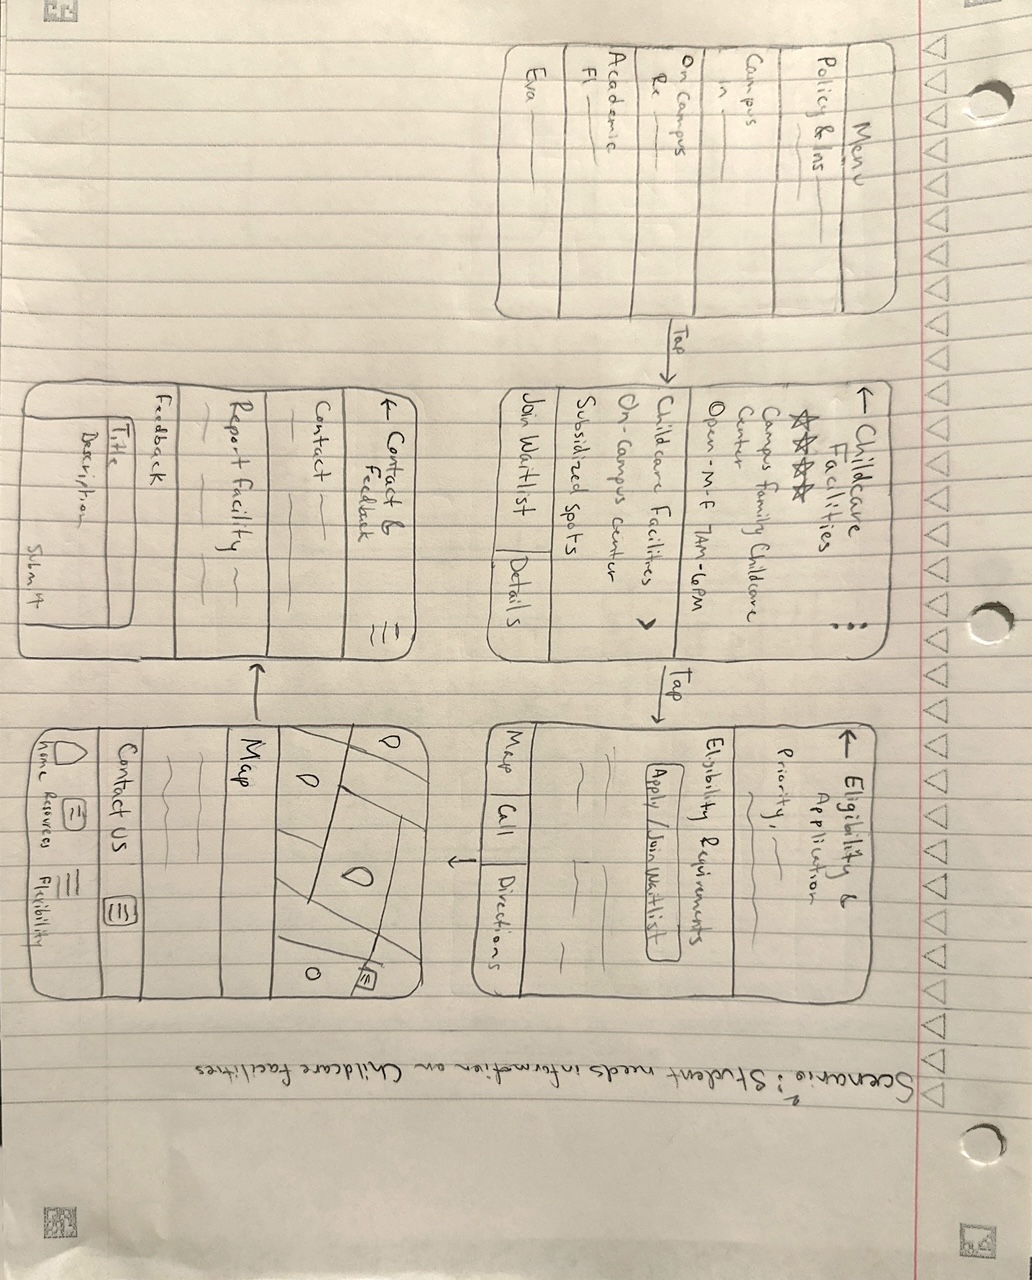 Scenario 2: Student needs information on Childcare facilities
Menu
Policy & Ins
Campus
In
On Campus
Re
Academic
Fl
Eva
Tap
← Childcare
Facilities
Campus Family Childcare
Center
Open - M-F 7AM-6PM
Childcare Facilities >
On-Campus center
Subsidized spots
Join Waitlist
Details
Tap
← Eligibility &
Application
Priority,
Eligibility Requirements
Apply / Join Waitlist
Map
Call
Directions
Map
Contact US
home
Resources
Flexibility
← Contact &
Feedback
Contact
Report Facility
Feedback
Title
Description
Submit